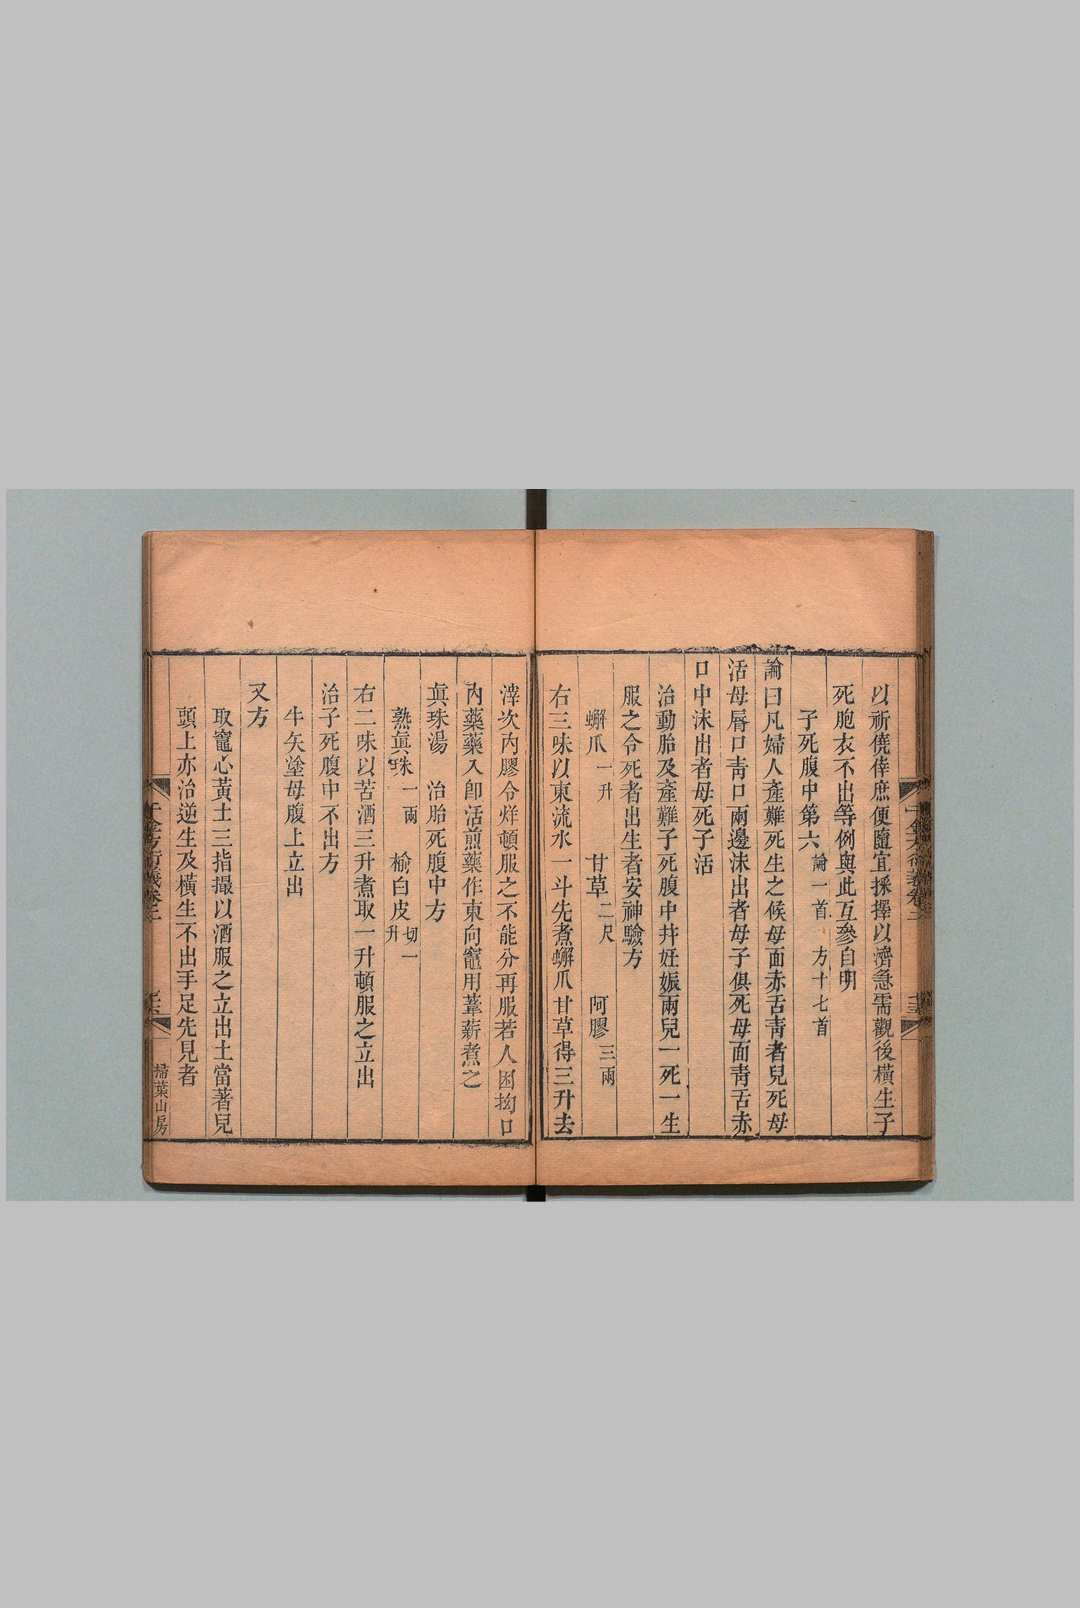 以祈僥倖庶便隨宜採擇以濟急需觀後橫生子
死胞衣不出等例與此互參自明
子死腹中第六論一首 方十七首
論曰凡婦人產難死生之候母面赤舌青者兒死母
活母脣口青口兩邊沫出者母子俱死母面青舌赤
口中沫出者母死子活
治動胎及產難子死腹中幷妊娠兩兒一死一生
服之令死者出生者安神驗方
蠏爪一升 甘草二尺 阿膠三兩
右三味以東流水一斗先煮蠏爪甘草得三升去
滓次內膠令烊頓服之不能分再服若人困拗口
內藥藥入卽活煎藥作東向竈用葦薪煮之
眞珠湯 治胎死腹中方
熟眞珠一兩 榆白皮切一升
右二味以苦酒三升煮取一升頓服之立出
治子死腹中不出方
牛矢塗母腹上立出
又方
取竈心黃土三指撮以酒服之立出土當著兒
頭上亦治逆生及橫生不出手足先見者
千金方衍義卷二
掃葉山房